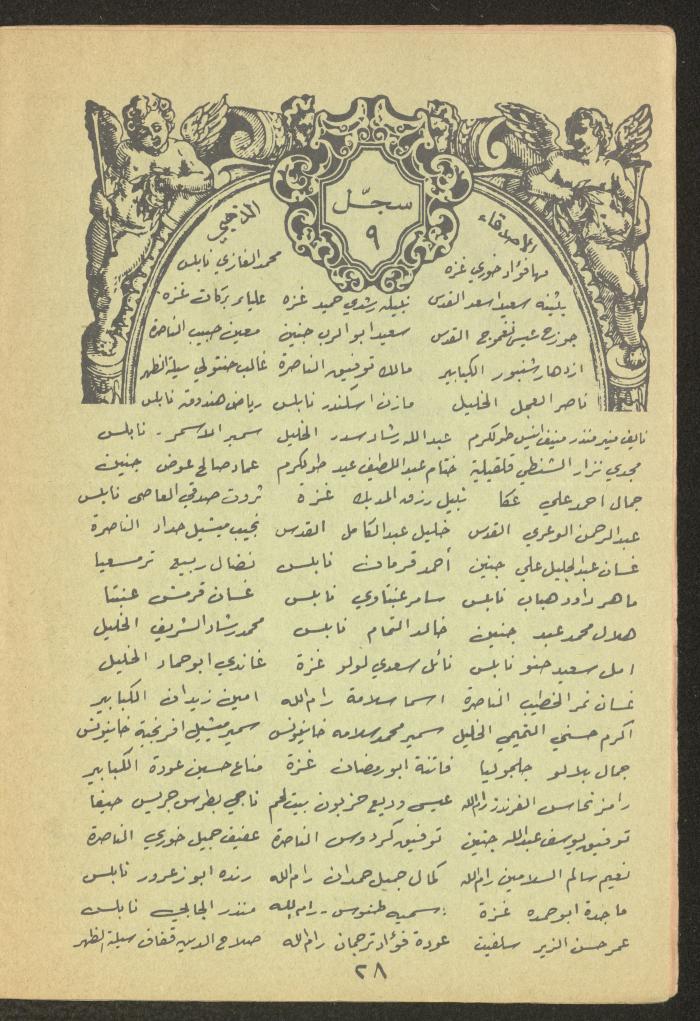 سجلّ
٩
الأصدقاء
الذهبي
مها فؤاد خوري غزة محمد الغازي نابلس
بثينه سعيد اسعد القدس نبيله رشدي حميد غزة علياء بركات غزه
جورج عيسى القدس سعيد ابو الرب جنين معين حبيب الناصرة
ازدهار شنبور الكبابير مالك توفيق الناصرة غالب حنتولي سيلة الظهر
ناصر العمل الخليل مازن اسكندر نابلس رياض هندوقه نابلس
نايف منير منذر منيف انيس طولكرم عبدالله رشاد سدر الخليل سمير الاسمر - نابلس
مجدي نزار الشنطي قلقيلية ختام عبد اللطيف عيد طولكرم عماد صالح عوض جنين
جمال احمد علي عكا نبيل رزق المدبك غزة ثروت صدقي العاصي نابلس
عبدالرحمن الوعري القدس خليل عبد الكامل القدس نجيب ميشيل حداد الناصرة
غسان عبد الجليل علي جنين أحمد قرمان نابلس نضال ربيع ترمسعيا
ماهر داود هباب نابلس سامر عنبتاوي نابلس غسان قرمش عنبتا
هلال محمد عبد جنين خالد التمام نابلس محمد رشاد الشريف الخليل
امل سعيد حنو نابلس نائل سعدي لولو غزة غاندي ابو حماد الخليل
غسان نمر الخطيب الناصرة اسما سلامة رام الله امين زيدان الكبابير
اكرم حسني التميمي الخليل سمير محمد سلامه خانيونس سمير ميشيل افرنجية خانيونس
جمال بلالو جلجوليا فاتنة ابو رمضان غزة مناع حسين عودة الكبابير
رامز نحاس الفرندز رام الله عيسى وديع حزبون بيت لحم ناجي بطرس جريس حيفا
توفيق يوسف عبدالله جنين توفيق كردوس الناصرة عفيف جميل خوري الناصرة
نعيم سالم السلامين رام الله كمال جميل حمدان رام الله رنده ابو زعرور نابلس
ماجدة ابو حمده غزة سميه طنوس - رام الله منذر الجابي نابلس
عمر حسن الزير سلفيت عودة فؤاد ترجمان رام الله صلاح الدين قفاف سيلة الظهر
٢٨